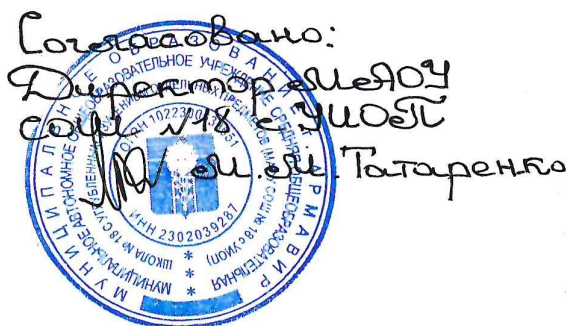 Согласовано:
Директор МАОУ
СОШ №18 с УИОП
М.М. Татаренко
МУНИЦИПАЛЬНОЕ ОБРАЗОВАНИЕ АРМАВИР
МУНИЦИПАЛЬНОЕ АВТОНОМНОЕ ОБЩЕОБРАЗОВАТЕЛЬНОЕ УЧРЕЖДЕНИЕ СРЕДНЯЯ ОБЩЕОБРАЗОВАТЕЛЬНАЯ
ШКОЛА № 18 С УГЛУБЛЕННЫМ ИЗУЧЕНИЕМ ОТДЕЛЬНЫХ ПРЕДМЕТОВ (МАОУ СОШ № 18 с УИОП)
ОГРН
ИНН 2302039287